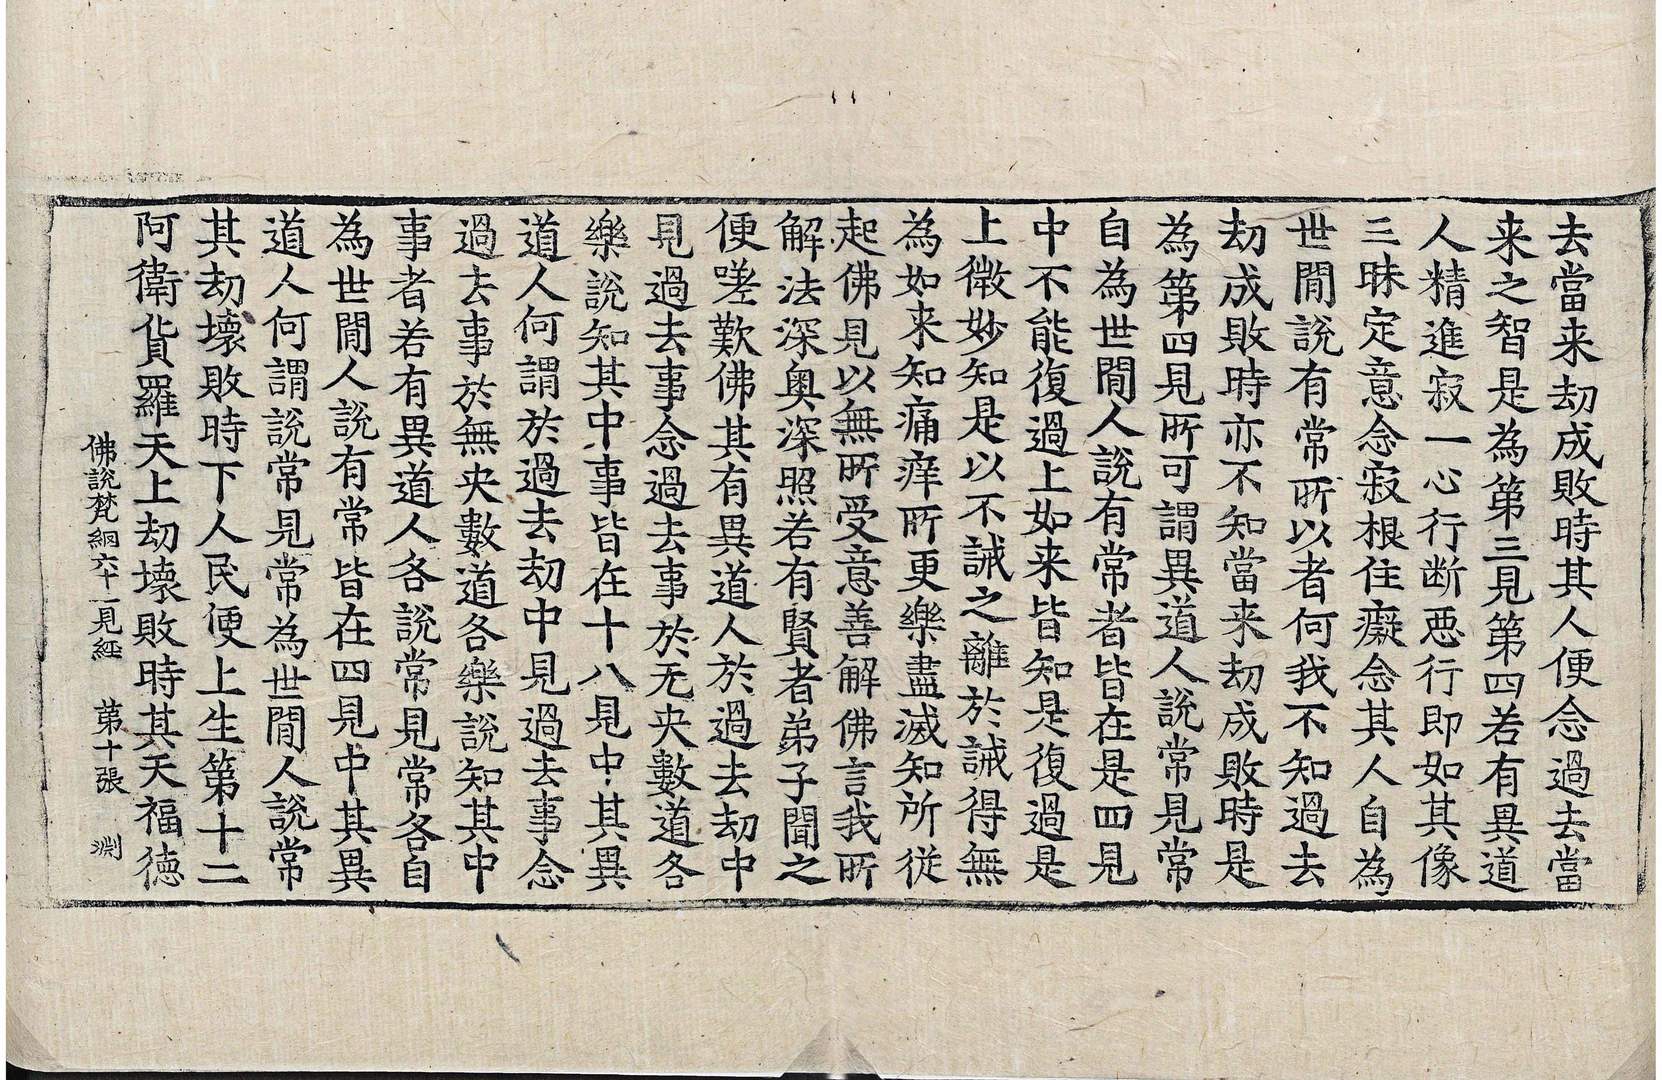 去當来劫成敗時其人便念過去當
来之智是為第三見第四若有異道
人精進寂一心行断惡行即如其像
三昧定意念寂根住癡念其人自為
世閒說有常所以者何我不知過去
劫成敗時亦不知當来劫成敗時是
為第四見所可謂異道人說常見常
自為世閒人說有常者皆在是四見
中不能復過上如来皆知是復過是
上微妙知是以不誡之離於誡得無
為如来知痛痒所更樂盡滅知所従
起佛見以無所受意善解佛言我所
解法深奥深照若有賢者弟子聞之
便嗟歎佛其有異道人於過去劫中
見過去事念過去事於无央數道各
樂說知其中事皆在十八見中其異
道人何謂於過去劫中見過去事念
過去事於無央數道各樂說知其中
事者若有異道人各說常見常各自
為世閒人說有常皆在四見中其異
道人何謂說常見常為世閒人說常
其劫壞敗時下人民便上生第十二
阿衛貨羅天上劫壞敗時其天福德
佛說梵網六十二見經 第十張 渊